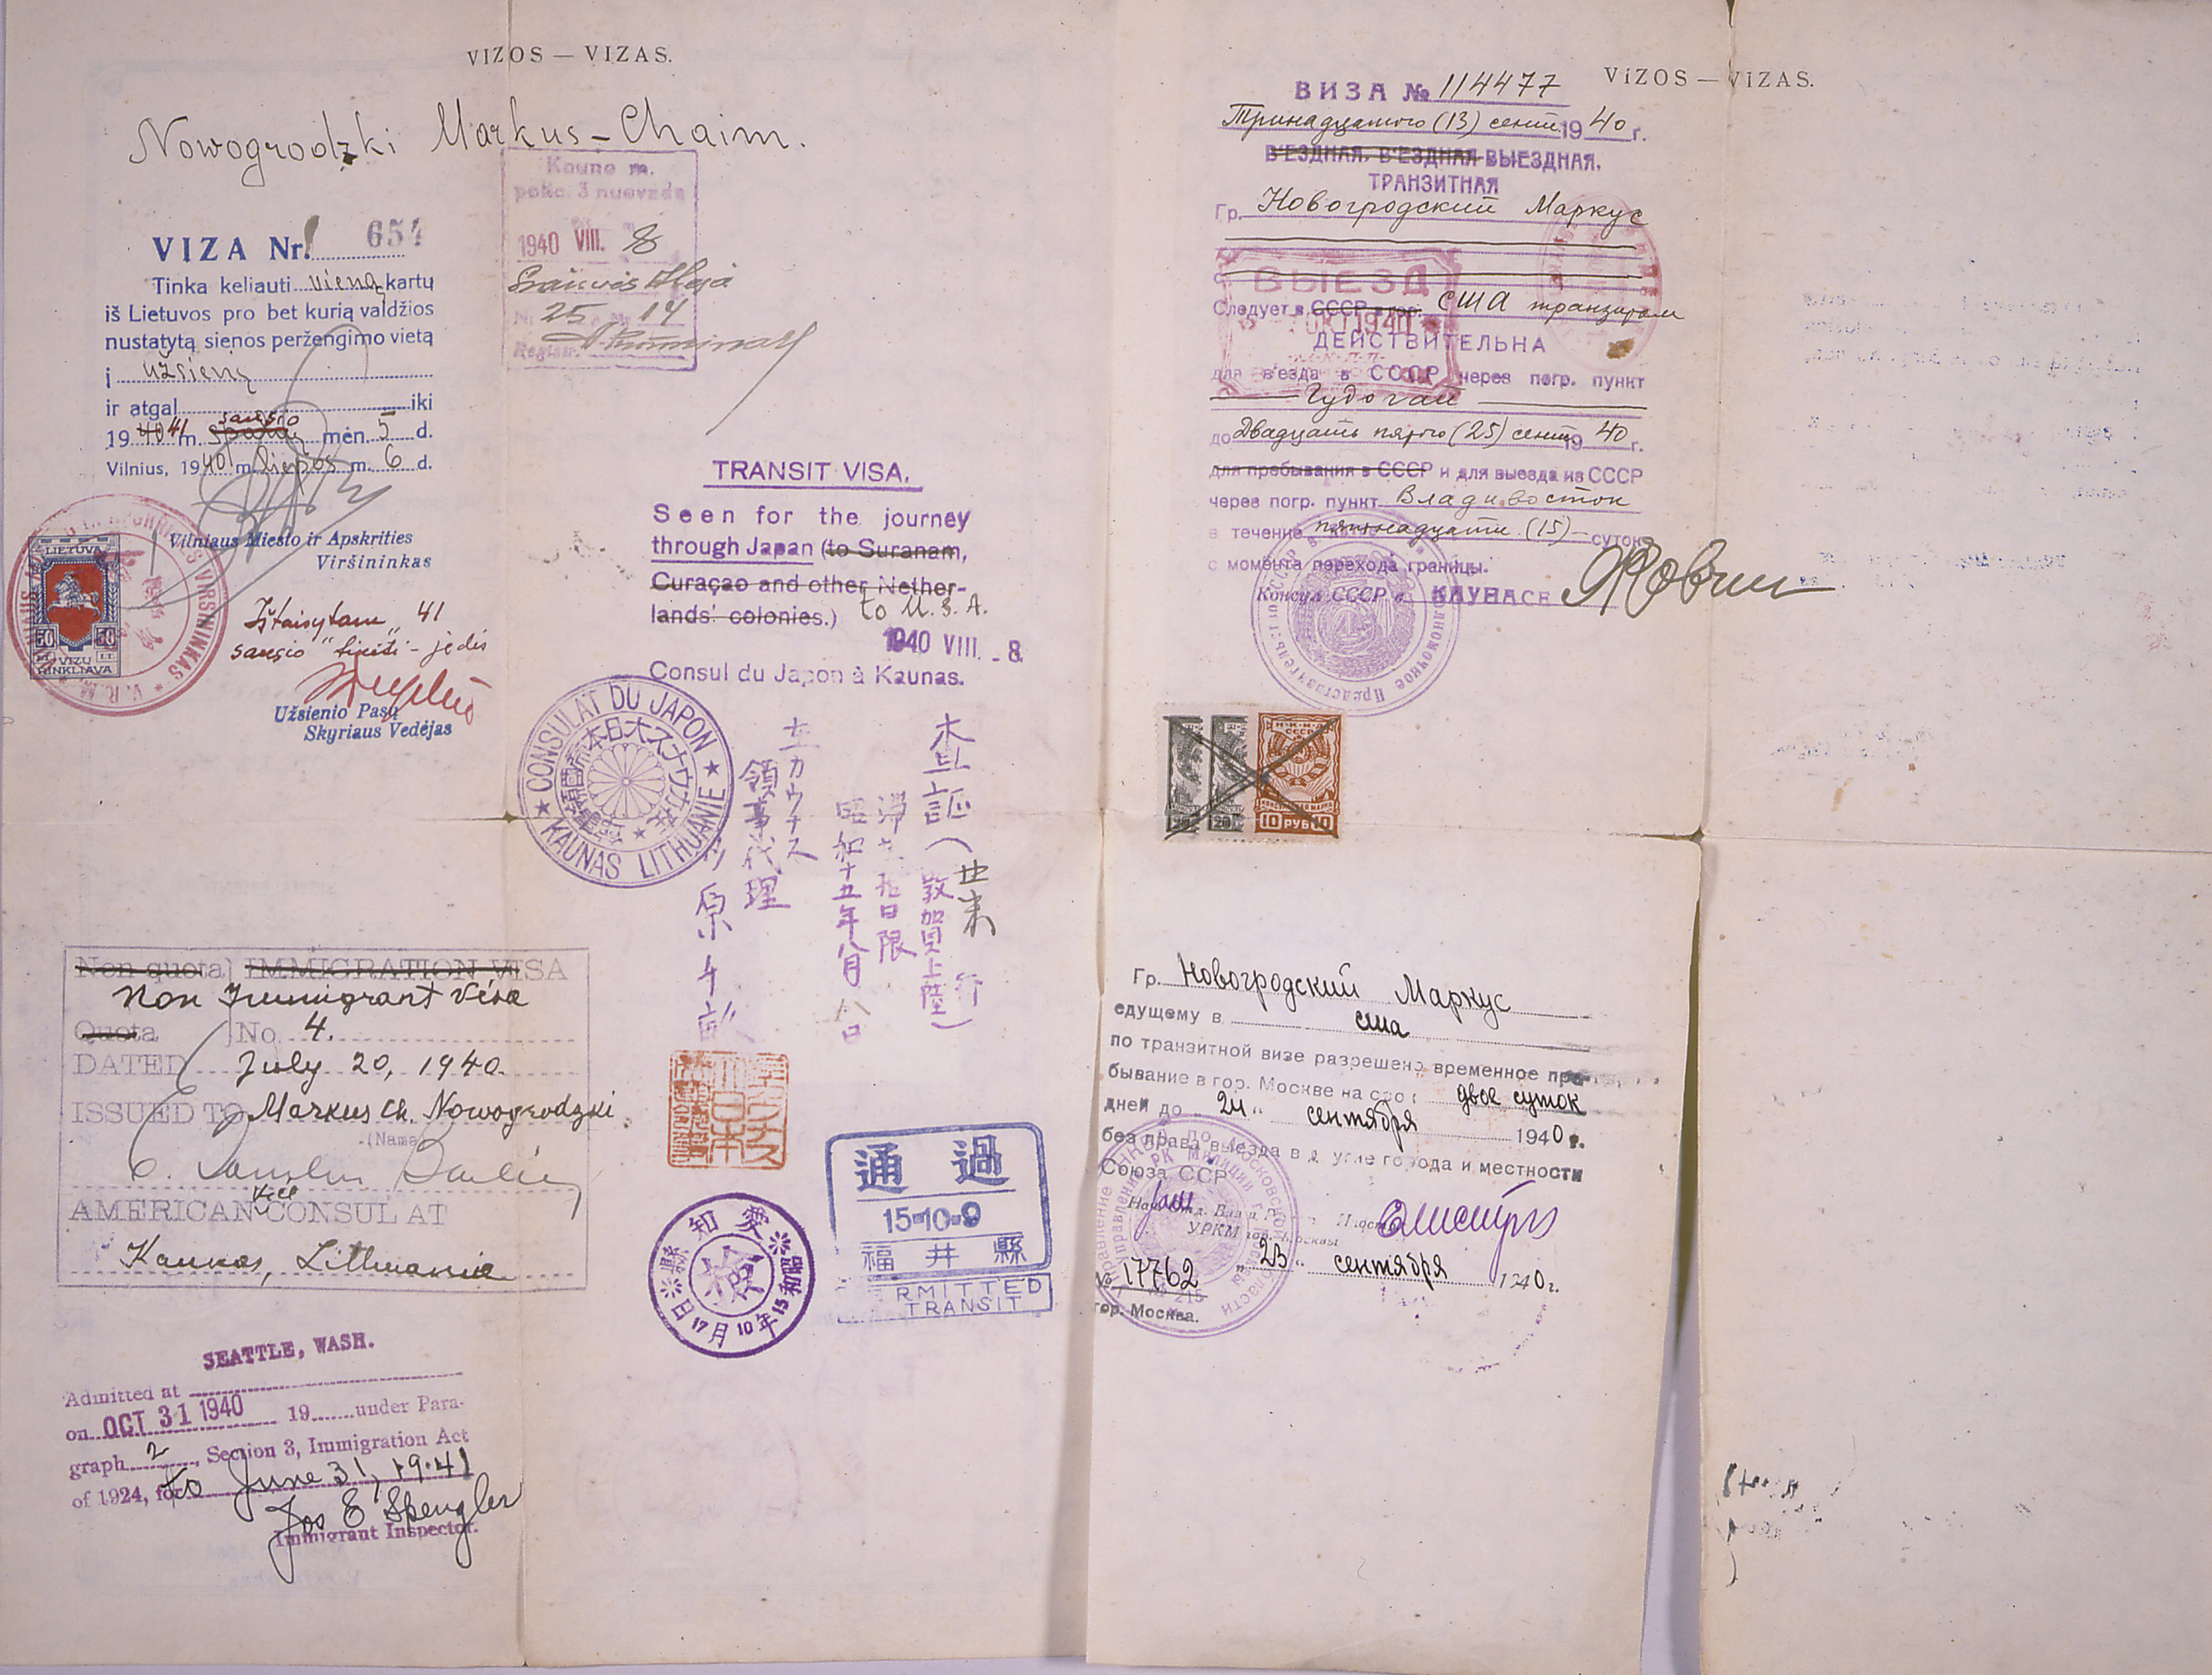 VIZOS — VIZAS.
Nowogrodzki Markus-Chaim.
VIZA Nr. 654
Tinka keliauti vieną kartų
iš Lietuvos pro bet kurią valdžios
nustatytą sienos peržengimo vietą
į užsienį
ir atgal iki
19 40 41 m. sausio mėn. 5 d.
Vilnius, 1940 m. liepos m. 6 d.
Vilniaus Miesto ir Apskrities
Viršininkas
LIETUVA
50 50
VIZŲ
RINKLIAVA
VIRŠININKAS
V.R.M.
Ištaisytam „41
sausio“ tikėti
Užsienio Pasų
Skyriaus Vedėjas
Kauno m.
polic. 3 nuovada
1940 VIII. 8
25 14
TRANSIT VISA.
Seen for the journey
through Japan (to Suranam,
Curaçao and other Nether-
lands' colonies.) to U.S.A.
1940 VIII. - 8.
Consul du Japon à Kaunas.
CONSULAT DU JAPON
KAUNAS LITHUANIE
査証(敦賀上陸)
行
昭和十五年八月八日
在カウナス
領事代理
杉原千畝
通過
15-10-9
福井縣
RMITTED
TRANSIT
愛知縣
檢
昭和15年10月17日
Non quota IMMIGRATION VISA
Non Immigrant Visa
Quota No. 4.
DATED July 20, 1940.
ISSUED TO Markus Ch. Nowogrodzki
(Name
Vice
AMERICAN CONSUL AT
Kaunas, Lithuania
SEATTLE, WASH.
Admitted at
on OCT 31 1940 19 under Para-
graph 2, Section 3, Immigration Act
of 1924, for to June 31, 1941
Jos E Spengler
Immigrant Inspector.
VIZOS — VIZAS.
ВИЗА № 114477
Тринадцатого (13) сент. 1940 г.
В'ЕЗДНАЯ, В'ЕЗДНАЯ-ВЫЕЗДНАЯ,
ТРАНЗИТНАЯ
Гр. Новогродский Маркус
С
ВЫЕЗД
Следует в СССР в гор. США транзитом
ОКТ 1940
ДЕЙСТВИТЕЛЬНА
для в'езда в СССР через погр. пункт
Гудогай
до Двадцать пятого (25) сент. 1940 г.
для пребывания в СССР и для выезда из СССР
через погр. пункт Владивосток
в течение пятнадцати (15) суток
с момента перехода границы.
Консул СССР в КАУНАСЕ
Полномочное Представитель
СССР
20 20 10 РУБ 10
Гр. Новогродский Маркус
едущему в США
по транзитной визе разрешено временное пре-
бывание в гор. Москве на срок двое суток
дней до 24 „ сентября 1940 г.
без права выезда в другие города и местности
Союза ССР
УРКМ гор. Москвы
№ 17762 „23„ сентября 1940 г.
гор. Москва.